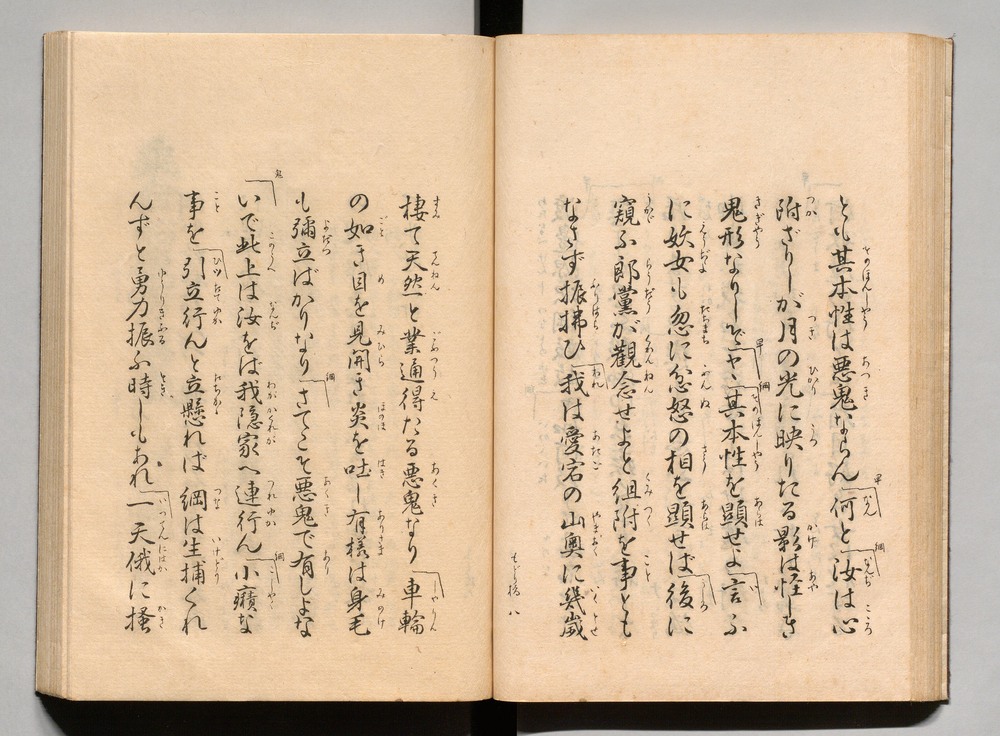 とも其本性は悪鬼ならん 何と 汝は心
附ざりしが月の光に映りたる影は怪しき
鬼形なりしぞや 其本性を顕せよ 言ふ
に妖女も忽に忿怒の相を顕せば 後に
窺ふ郎黨が観念せよと組附を事とも
なさず振拂ひ 我は愛宕の山奥に幾歳
もどり橋 八
棲て天然と業通得たる悪鬼なり 車輪
の如き目を見開き炎を吐し有様は身毛
も彌立ばかりなり さてこそ悪鬼で有しよな
いで此上は汝をば我隠家へ連行ん 小癪な
事を 引立行んと立懸れば 綱は生捕くれ
んずと勇力振ふ時しもあれ 一天俄に掻